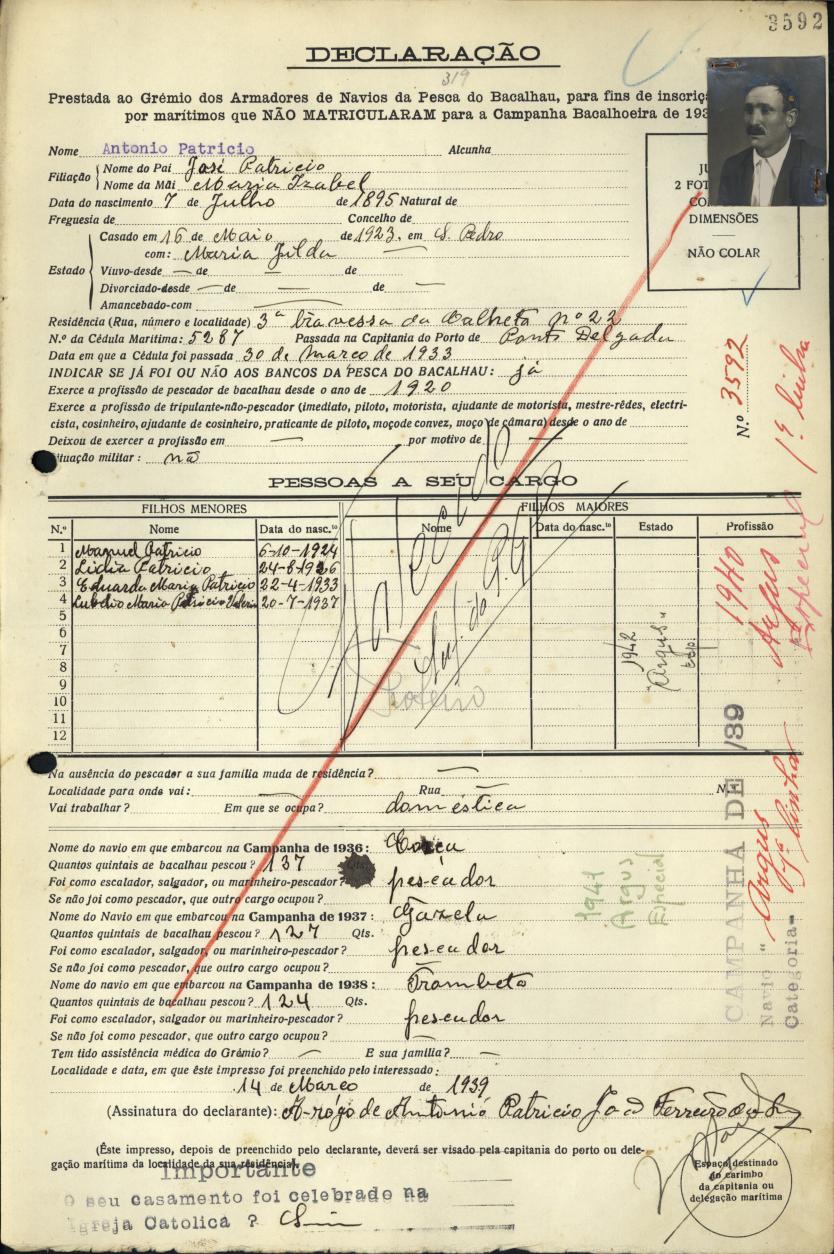 3592
DECLARAÇÃO
319
Prestada ao Grémio dos Armadores de Navios da Pesca do Bacalhau, para fins de inscriçã
por marítimos que NÃO MATRICULARAM para a Campanha Bacalhoeira de 193
Nome Antonio Patricio Alcunha
Filiação Nome do Pai José Patricio
Nome da Mãi Maria Izabel
Data do nascimento 7 de Julho de 1895 Natural de
Freguesia de Concelho de
Estado Casado em 16 de Maio de 1923, em S. Pedro
com: Maria Jilda
Viuvo-desde — de — de
Divorciado-desde — de — de —
Amancebado-com
Residência (Rua, número e localidade) 3ª travessa da Calheta nº 22
N.º da Cédula Maritima: 5287 Passada na Capitania do Porto de Ponta Delgada
Data em que a Cédula foi passada 30 de março de 1933
INDICAR SE JÁ FOI OU NÃO AOS BANCOS DA PESCA DO BACALHAU: já
Exerce a profissão de pescador de bacalhau desde o ano de 1920
Exerce a profissão de tripulante-não-pescador (imediato, piloto, motorista, ajudante de motorista, mestre-rêdes, electri-
cista, cosinheiro, ajudante de cosinheiro, praticante de piloto, moçode convez, moço de câmara) desde o ano de
Deixou de exercer a profissão em — por motivo de —
ituação militar: não
2 FOT
DIMENSÕES
NÃO COLAR
N.º 3592
PESSOAS A SEU CARGO
FILHOS MENORES FILHOS MAIORES
N.º Nome Data do nasc.to Nome Data do nasc.to Estado Profissão
1 Manuel Patricio 6-10-1924
2 Lidia Patricio 24-8-1926
3 Eduarda Maria Patricio 22-4-1933
4 Maria Patricio 20-7-1937
5
6
7
8
9
10
11
12
Falecido
1942
"Argus"
Esp.
1940
Argus
Especial 1ª linha
Na ausência do pescador a sua família muda de residência? —
Localidade para onde vai: — Rua — N.º
Vai trabalhar? Em que se ocupa? doméstica
Nome do navio em que embarcou na Campanha de 1936:
Quantos quintais de bacalhau pescou? 137 Qts.
Foi como escalador, salgador, ou marinheiro-pescador? pescador
Se não foi como pescador, que outro cargo ocupou?
Nome do Navio em que embarcou na Campanha de 1937: Gazela
Quantos quintais de bacalhau pescou? 127 Qts.
Foi como escalador, salgador, ou marinheiro-pescador? pescador
Se não foi como pescador, que outro cargo ocupou?
Nome do navio em que embarcou na Campanha de 1938: Trombeta
Quantos quintais de bacalhau pescou? 124 Qts.
Foi como escalador, salgador ou marinheiro-pescador? pescador
Se não foi como pescador, que outro cargo ocupou? —
Tem tido assistência médica do Grémio? — E sua família? —
Localidade e data, em que êste impresso foi preenchido pelo interessado:
14 de Março de 1939
(Assinatura do declarante): A rôgo de António Patricio
1941
Argus
Especial
CAMPANHA DE /39
Navio " Argus
Categoria- 1ª linha
(Êste impresso, depois de preenchido pelo declarante, deverá ser visado pela capitania do porto ou dele-
gação marítima da localidade da sua residência).
Espaço destinado
do carimbo
da capitania ou
delegação marítima
Importante
O seu casamento foi celebrado na
Igreja Catolica ? Sim